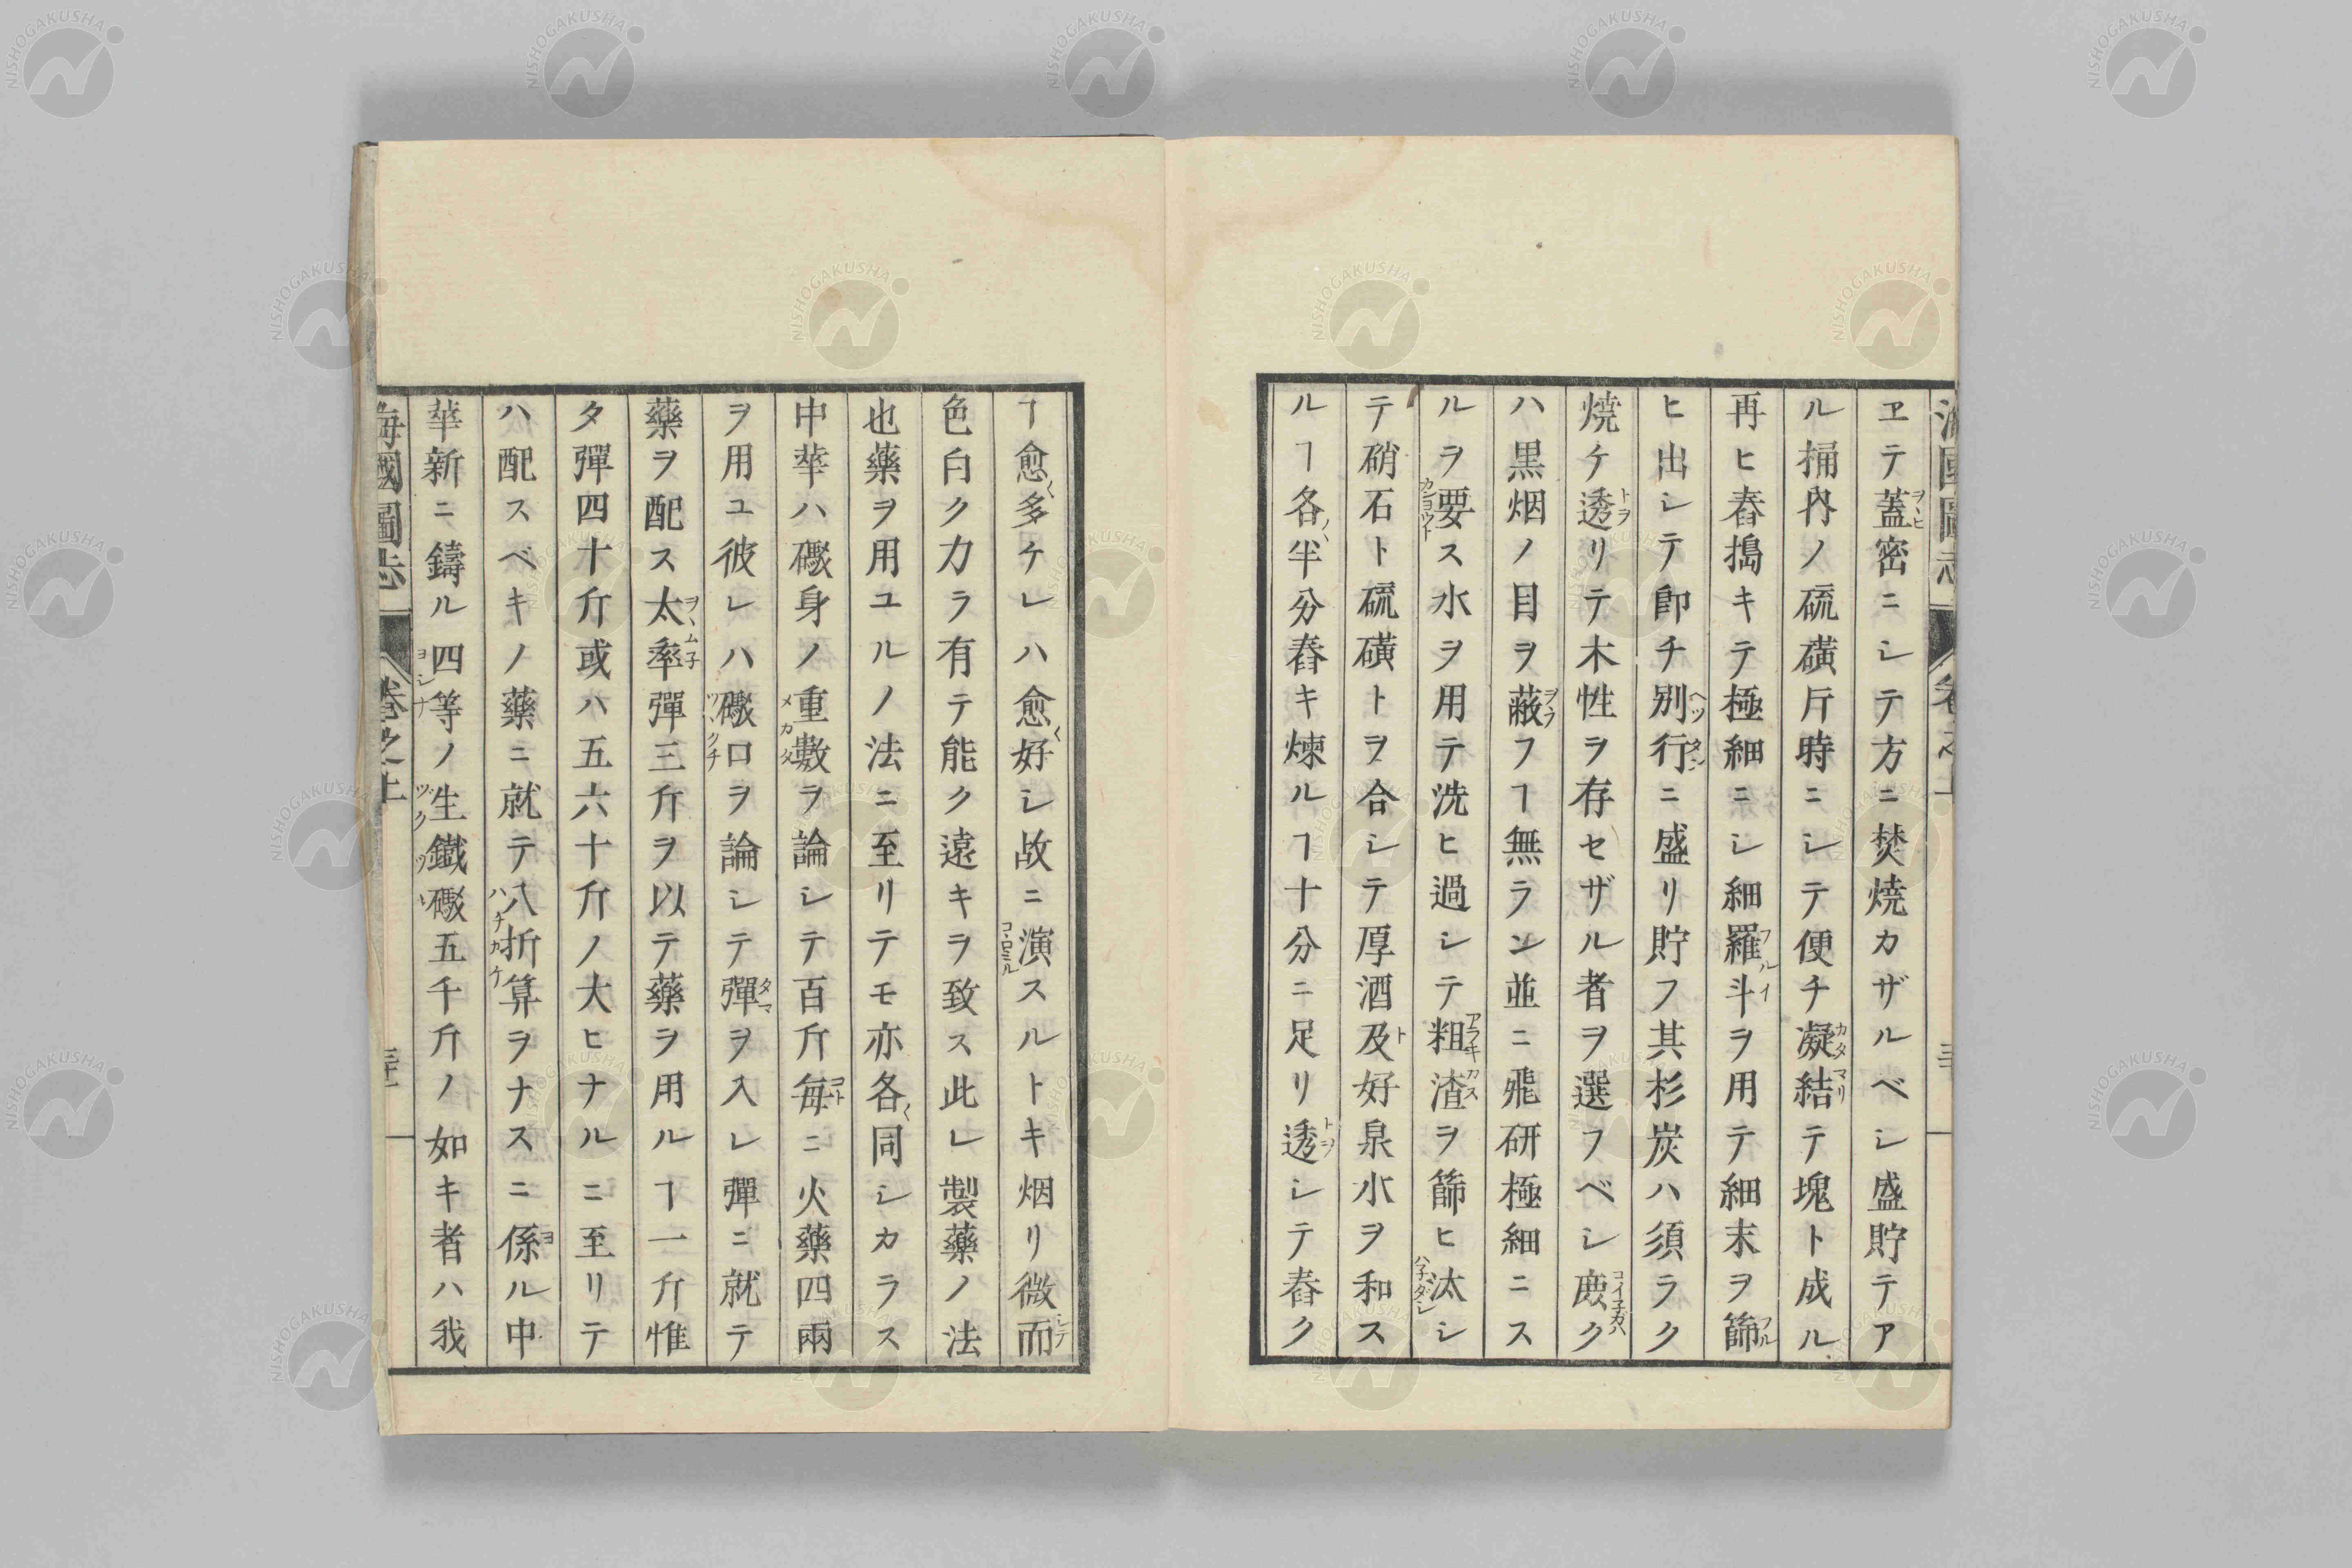 ヱテ蓋密ニシテ方ニ焚燒カザルベシ盛貯テア
ル桶內ノ硫磺斤時ニシテ便チ凝結テ塊ト成ル
再ヒ舂搗キテ極細ニシ細羅斗ヲ用テ細末ヲ篩
ヒ出シテ卽チ別行ニ盛リ貯フ其杉炭ハ須ラク
燒ケ透リテ木性ヲ存セザル者ヲ選フベシ庻ク
ハ黒烟ノ目ヲ蔽フヿ無ラン並ニ飛研極細ニス
ルヲ要ス水ヲ用テ洗ヒ過シテ粗渣ヲ篩ヒ汰シ
テ硝石ト硫磺トヲ合シテ厚酒及好泉水ヲ和ス
ルヿ各半分舂キ煉ルヿ十分ニ足リ透シテ舂ク
ヿ愈多ケレハ愈好シ故ニ演スルトキ烟リ微而
色白ク力ラ有テ能ク遠キヲ致ス此レ製藥ノ法
也藥ヲ用ユルノ法ニ至リテモ亦各同シカラス
中華ハ礮身ノ重數ヲ論シテ百斤每ニ火藥四兩
ヲ用ユ彼レハ礮口ヲ論シテ彈ヲ入レ彈ニ就テ
藥ヲ配ス太率彈三斤ヲ以テ藥ヲ用ルヿ一斤惟
タ彈四十斤或ハ五六十斤ノ大ヒナルニ至リテ
ハ配スベキノ藥ニ就テ八折算ヲナスニ係ル中
華新ニ鑄ル四等ノ生鐵礮五千斤ノ如キ者ハ我
海國圖志 卷之上
NISHOGAKUSHA